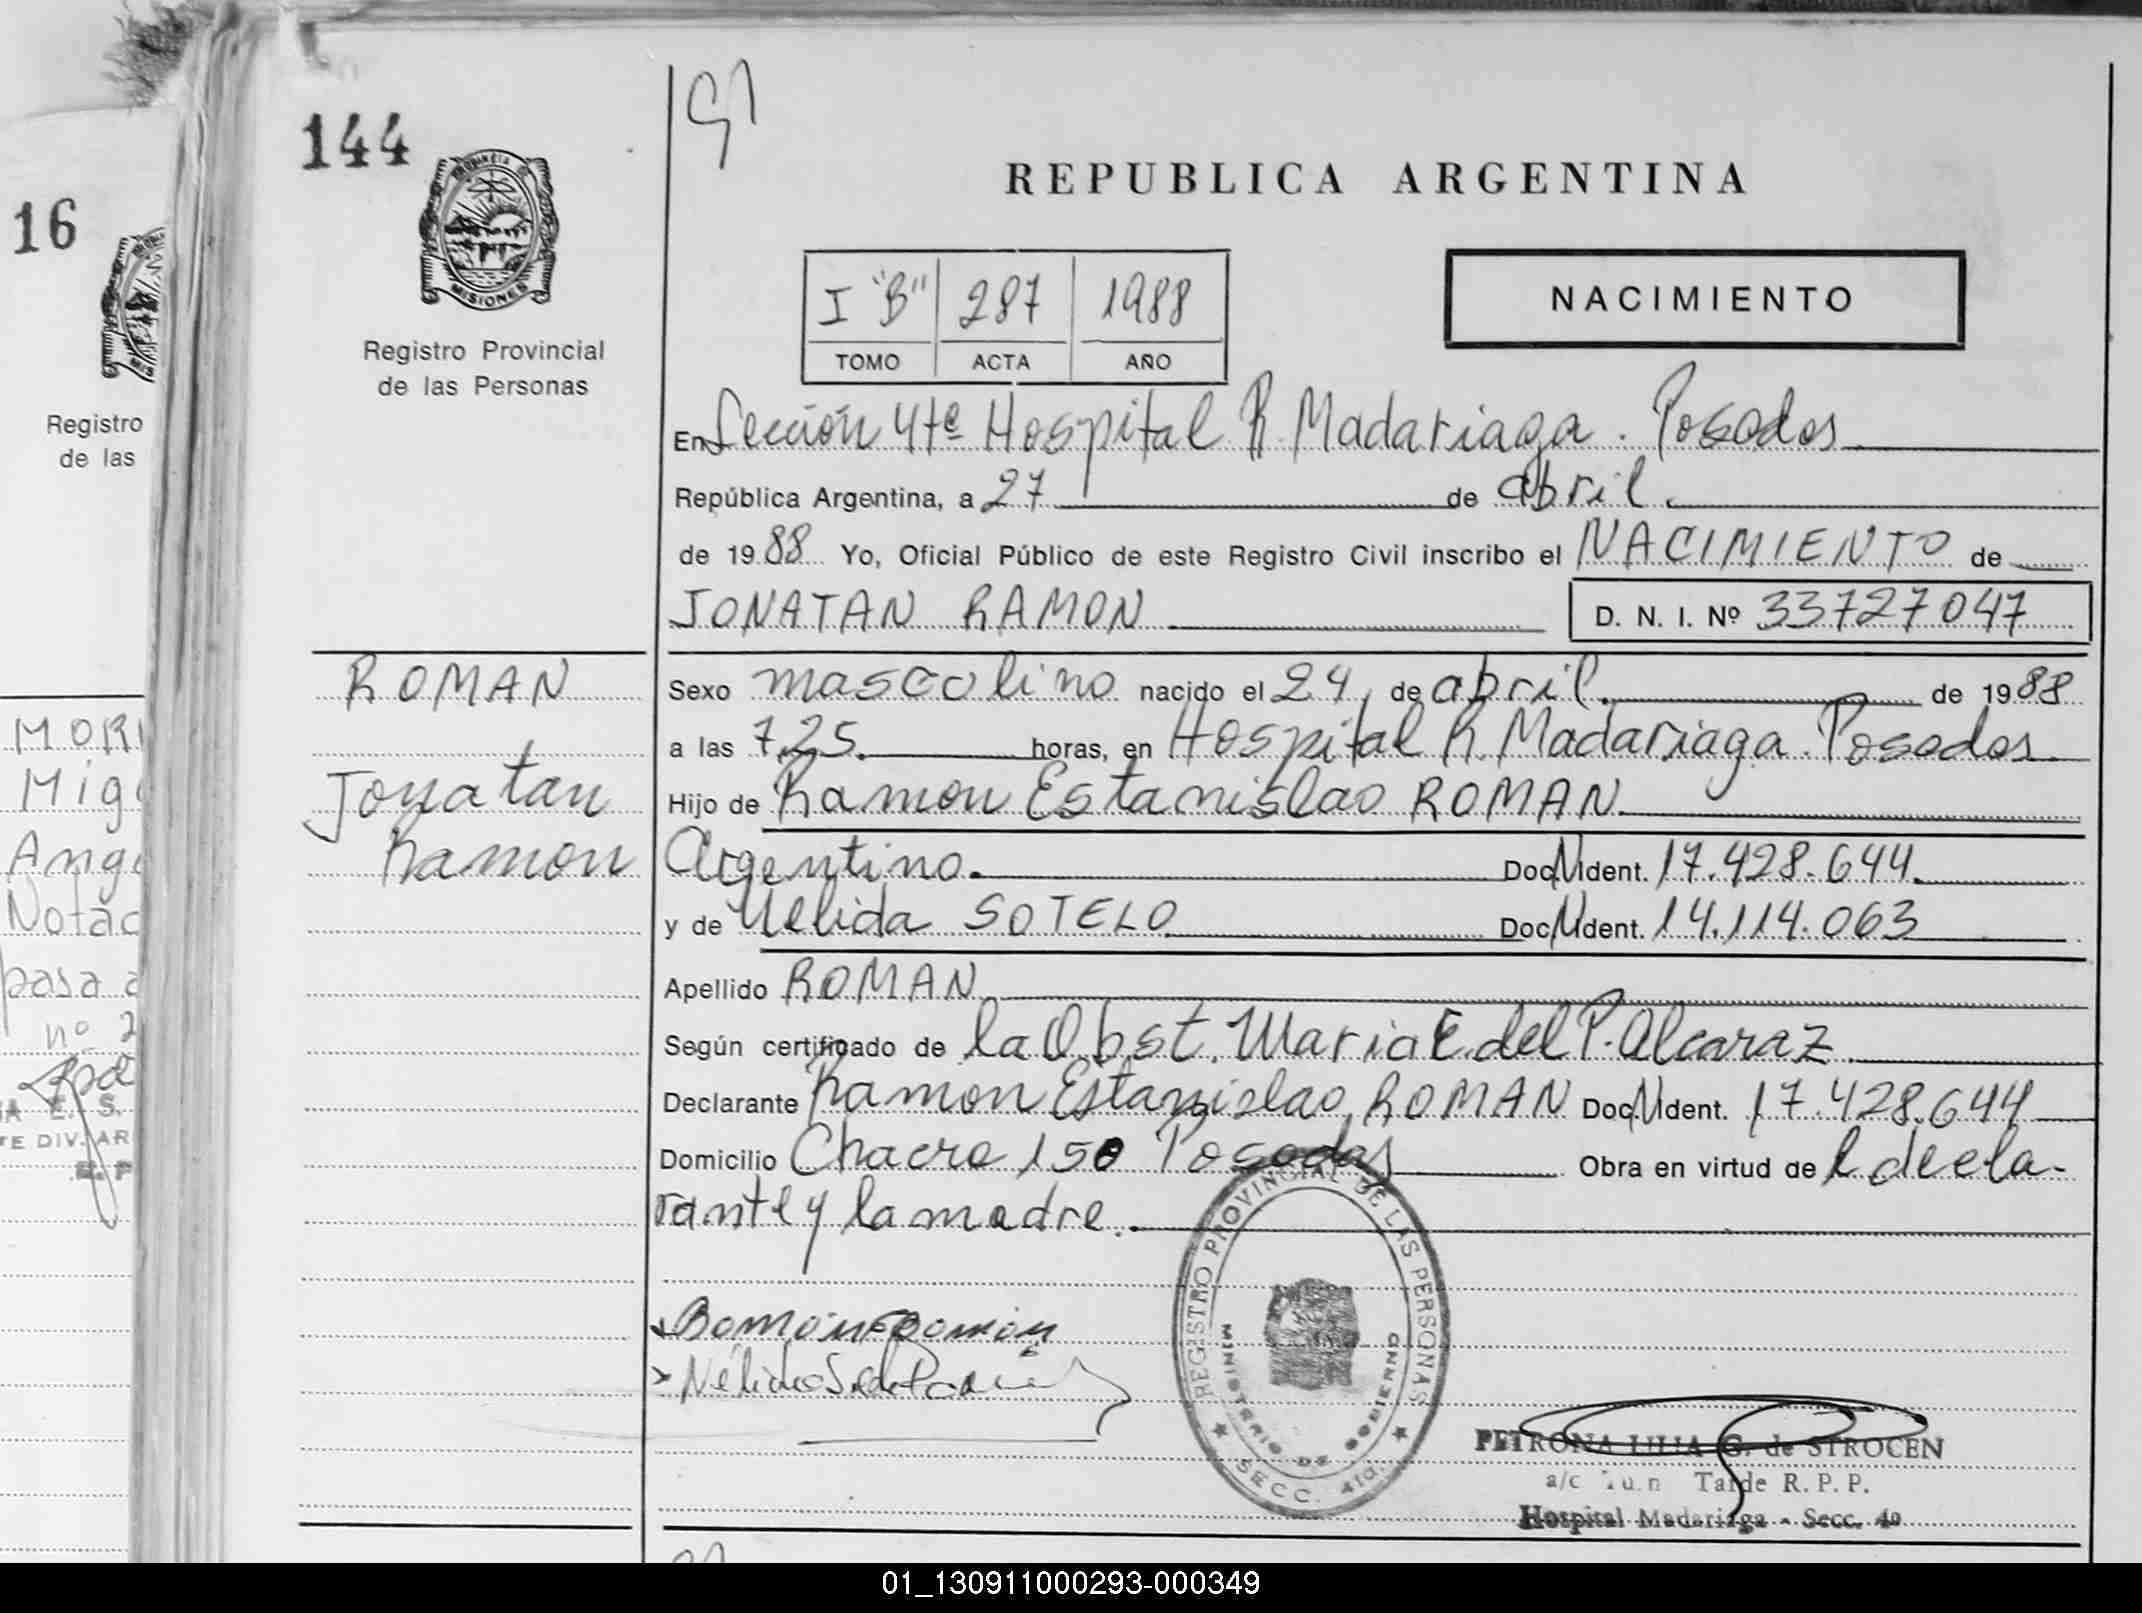 16
Registro
de las
MOR
Mig
Ang
Notac
pasa a
nº 2
E. S.
DIV. AR
144
PROVINCIA DE
MISIONES
Registro Provincial
de las Personas
REPUBLICA ARGENTINA
NACIMIENTO
I "B" 287 1988
TOMO ACTA AÑO
En Sección 4ta Hospital R. Madariaga. Posadas
República Argentina, a 27 de abril.
de 1988 Yo, Oficial Público de este Registro Civil inscribo el NACIMIENTO de
JONATAN RAMON D. N. I. Nº 33727047
ROMAN
Jonatan
Ramon
Sexo mascolino nacido el 24, de abril. de 1988
a las 7,25. horas, en Hospital R. Madariaga. Posadas
Hijo de Ramon Estanislao ROMAN
Argentino. Doc. N Ident. 17.428.644.
y de Nelida SOTELO Doc. N Ident. 14.114.063
Apellido ROMAN
Según certificado de la Obst. Maria E. del P. Alcaraz
Declarante Ramon Estanislao ROMAN Doc. N Ident. 17.428.644
Domicilio Chacra 150 Posadas Obra en virtud de l decla-
rante y la madre.
REGISTRO PROVINCIAL DE LAS PERSONAS
MINISTERIO DE GOBIERNO
SECC. 4ta.
PETRONA LILIA G. de STROCEN
a/c Tarde R. P. P.
Hospital Madariaga - Secc. 4a
01_130911000293-000349